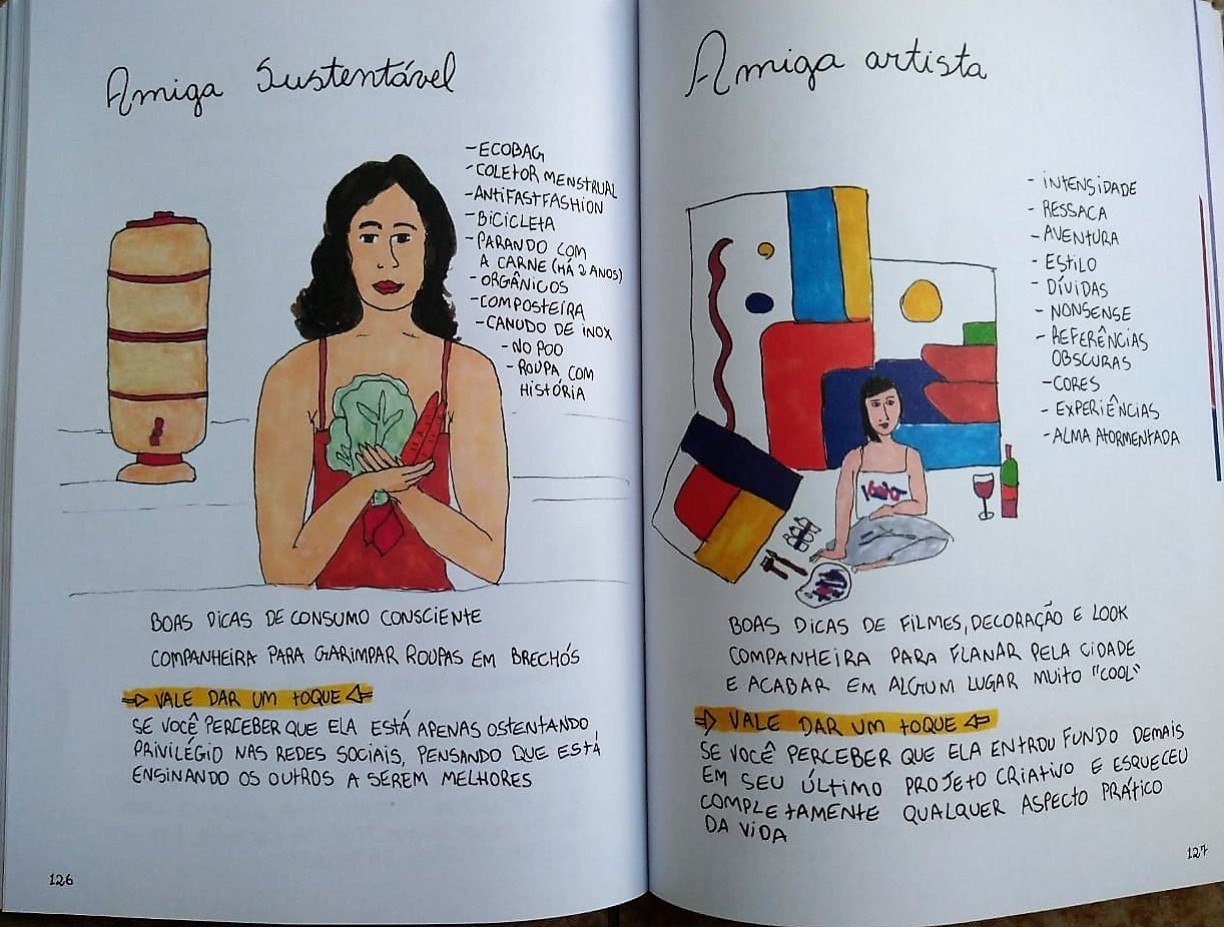 Amiga Sustentável
- ECOBAG
- COLETOR MENSTRUAL
- ANTIFASTFASHION
- BICICLETA
- PARANDO COM
A CARNE (HÁ 2 ANOS)
- ORGÂNICOS
- COMPOSTEIRA
- CANUDO DE INOX
- NO POO
- ROUPA COM
HISTÓRIA
BOAS DICAS DE CONSUMO CONSCIENTE
COMPANHEIRA PARA GARIMPAR ROUPAS EM BRECHÓS
⇨ VALE DAR UM TOQUE ⇦
SE VOCÊ PERCEBER QUE ELA ESTÁ APENAS OSTENTANDO
PRIVILÉGIO NAS REDES SOCIAIS, PENSANDO QUE ESTÁ
ENSINANDO OS OUTROS A SEREM MELHORES
126
Amiga artista
- INTENSIDADE
- RESSACA
- AVENTURA
- ESTILO
- DÍVIDAS
- NONSENSE
- REFERÊNCIAS
OBSCURAS
- CORES
- EXPERIÊNCIAS
- ALMA ATORMENTADA
BOAS DICAS DE FILMES, DECORAÇÃO E LOOK
COMPANHEIRA PARA FLANAR PELA CIDADE
E ACABAR EM ALGUM LUGAR MUITO "COOL"
⇨ VALE DAR UM TOQUE ⇦
SE VOCÊ PERCEBER QUE ELA ENTROU FUNDO DEMAIS
EM SEU ÚLTIMO PROJETO CRIATIVO E ESQUECEU
COMPLETAMENTE QUALQUER ASPECTO PRÁTICO
DA VIDA
127